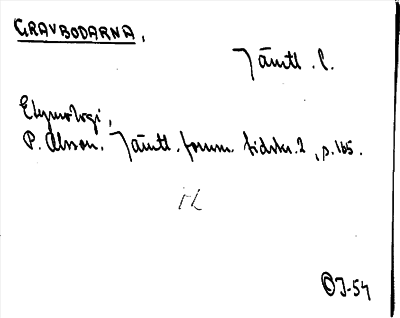 GRAVBODARNA,
Jämtl. l.
Etymologi,
P. Olsson. Jämtl. fornm. tidskr. 2, p. 165.
HL
OJ-54